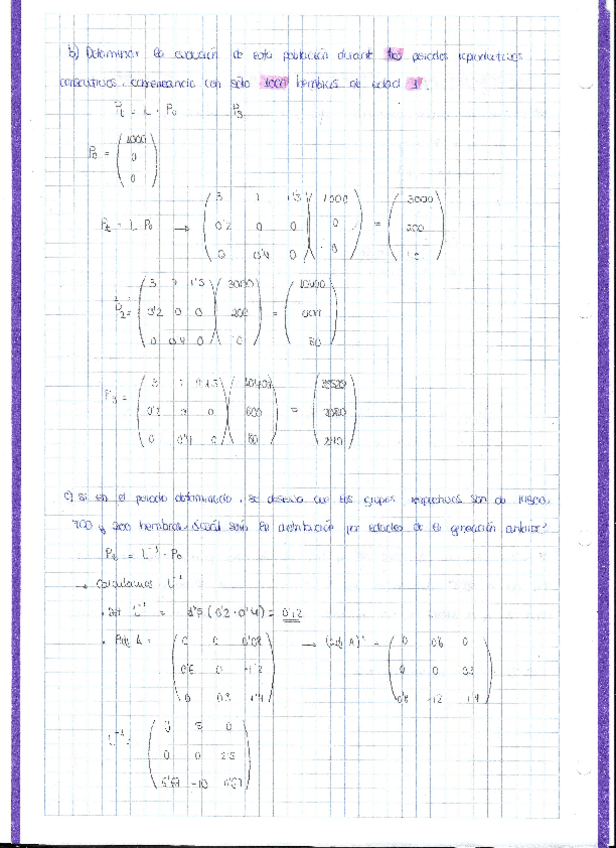 b) Determinar la evolución de esta población durante tres periodos reproductivos
consecutivos, comenzando con sólo 1000 hembras de edad 1.
Pt = L · P0 P3
P0 = ( 1000 0 0 )
Pt = L P0 → ( 3 1 1'5 ) ( 1000 ) = ( 3000 )
( 0'2 0 0 ) ( 0 ) ( 200 )
( 0 0'4 0 ) ( 0 ) ( 0 )
P2 = ( 3 1 1'5 ) ( 3000 ) = ( )
( 0'2 0 0 ) ( 200 ) ( 600 )
( 0 0'4 0 ) ( 0 ) ( 80 )
P3 = ( 3 1 ) ( ) = ( )
( 0'2 0 0 ) ( 600 ) ( 2080 )
( 0 0'4 0 ) ( 80 ) ( 240 )
c) Si en el periodo determinado, se observa que los grupos respectivos son de
700 y 200 hembras. ¿Cuál sería la distribución por edades de la generación anterior?
Pt = L⁻¹ · P0
→ Calculamos L⁻¹
· det L⁻¹ = 1'5 (0'2 · 0'4) = 0'12
· Adj A = ( 0 0 0'08 ) → (Adj A)ᵗ = ( 0 0'6 0 )
( 0'6 0 -1'2 ) ( 0 0 0'3 )
( 0 0'3 ) ( 0'08 -1'2 )
L⁻¹ = ( 0 5 0 )
( 0 0 2'5 )
( -10 )